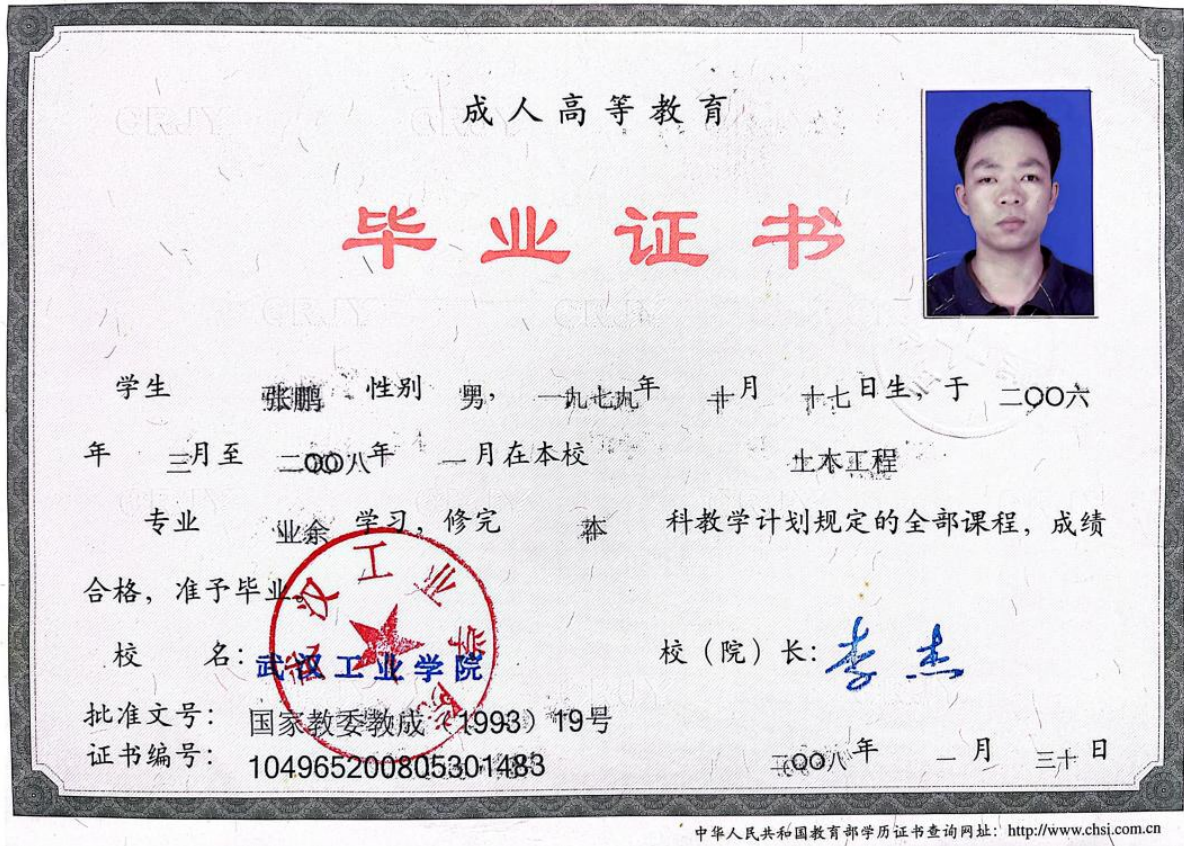 成人高等教育
毕业证书
学生 张鹏 性别 男, 一九七九年 十月 十七日生, 于 二〇〇六
年 三月至 二〇〇八年 一月在本校 土木工程
专业 业余 学习, 修完 本 科教学计划规定的全部课程, 成绩
合格, 准予毕业。
校 名: 武汉工业学院 校(院)长: 李杰
武汉工业学院
批准文号: 国家教委教成(1993)19号
证书编号: 104965200805301483 二〇〇八年 一月 三十日
中华人民共和国教育部学历证书查询网址: http://www.chsi.com.cn